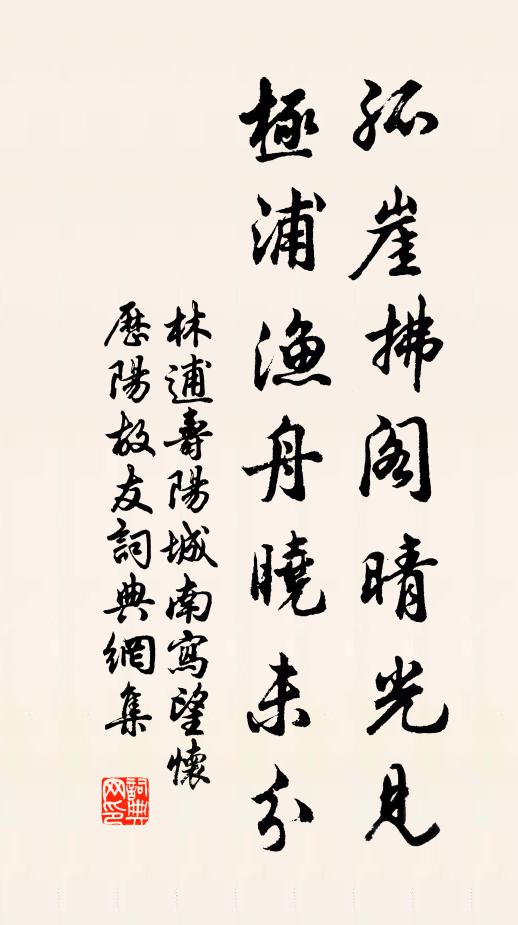 孤崖拂閣晴光見
極浦漁舟曉未分
林逋壽陽城南寫望懷
歷陽故友詞典網集
詞典
网印